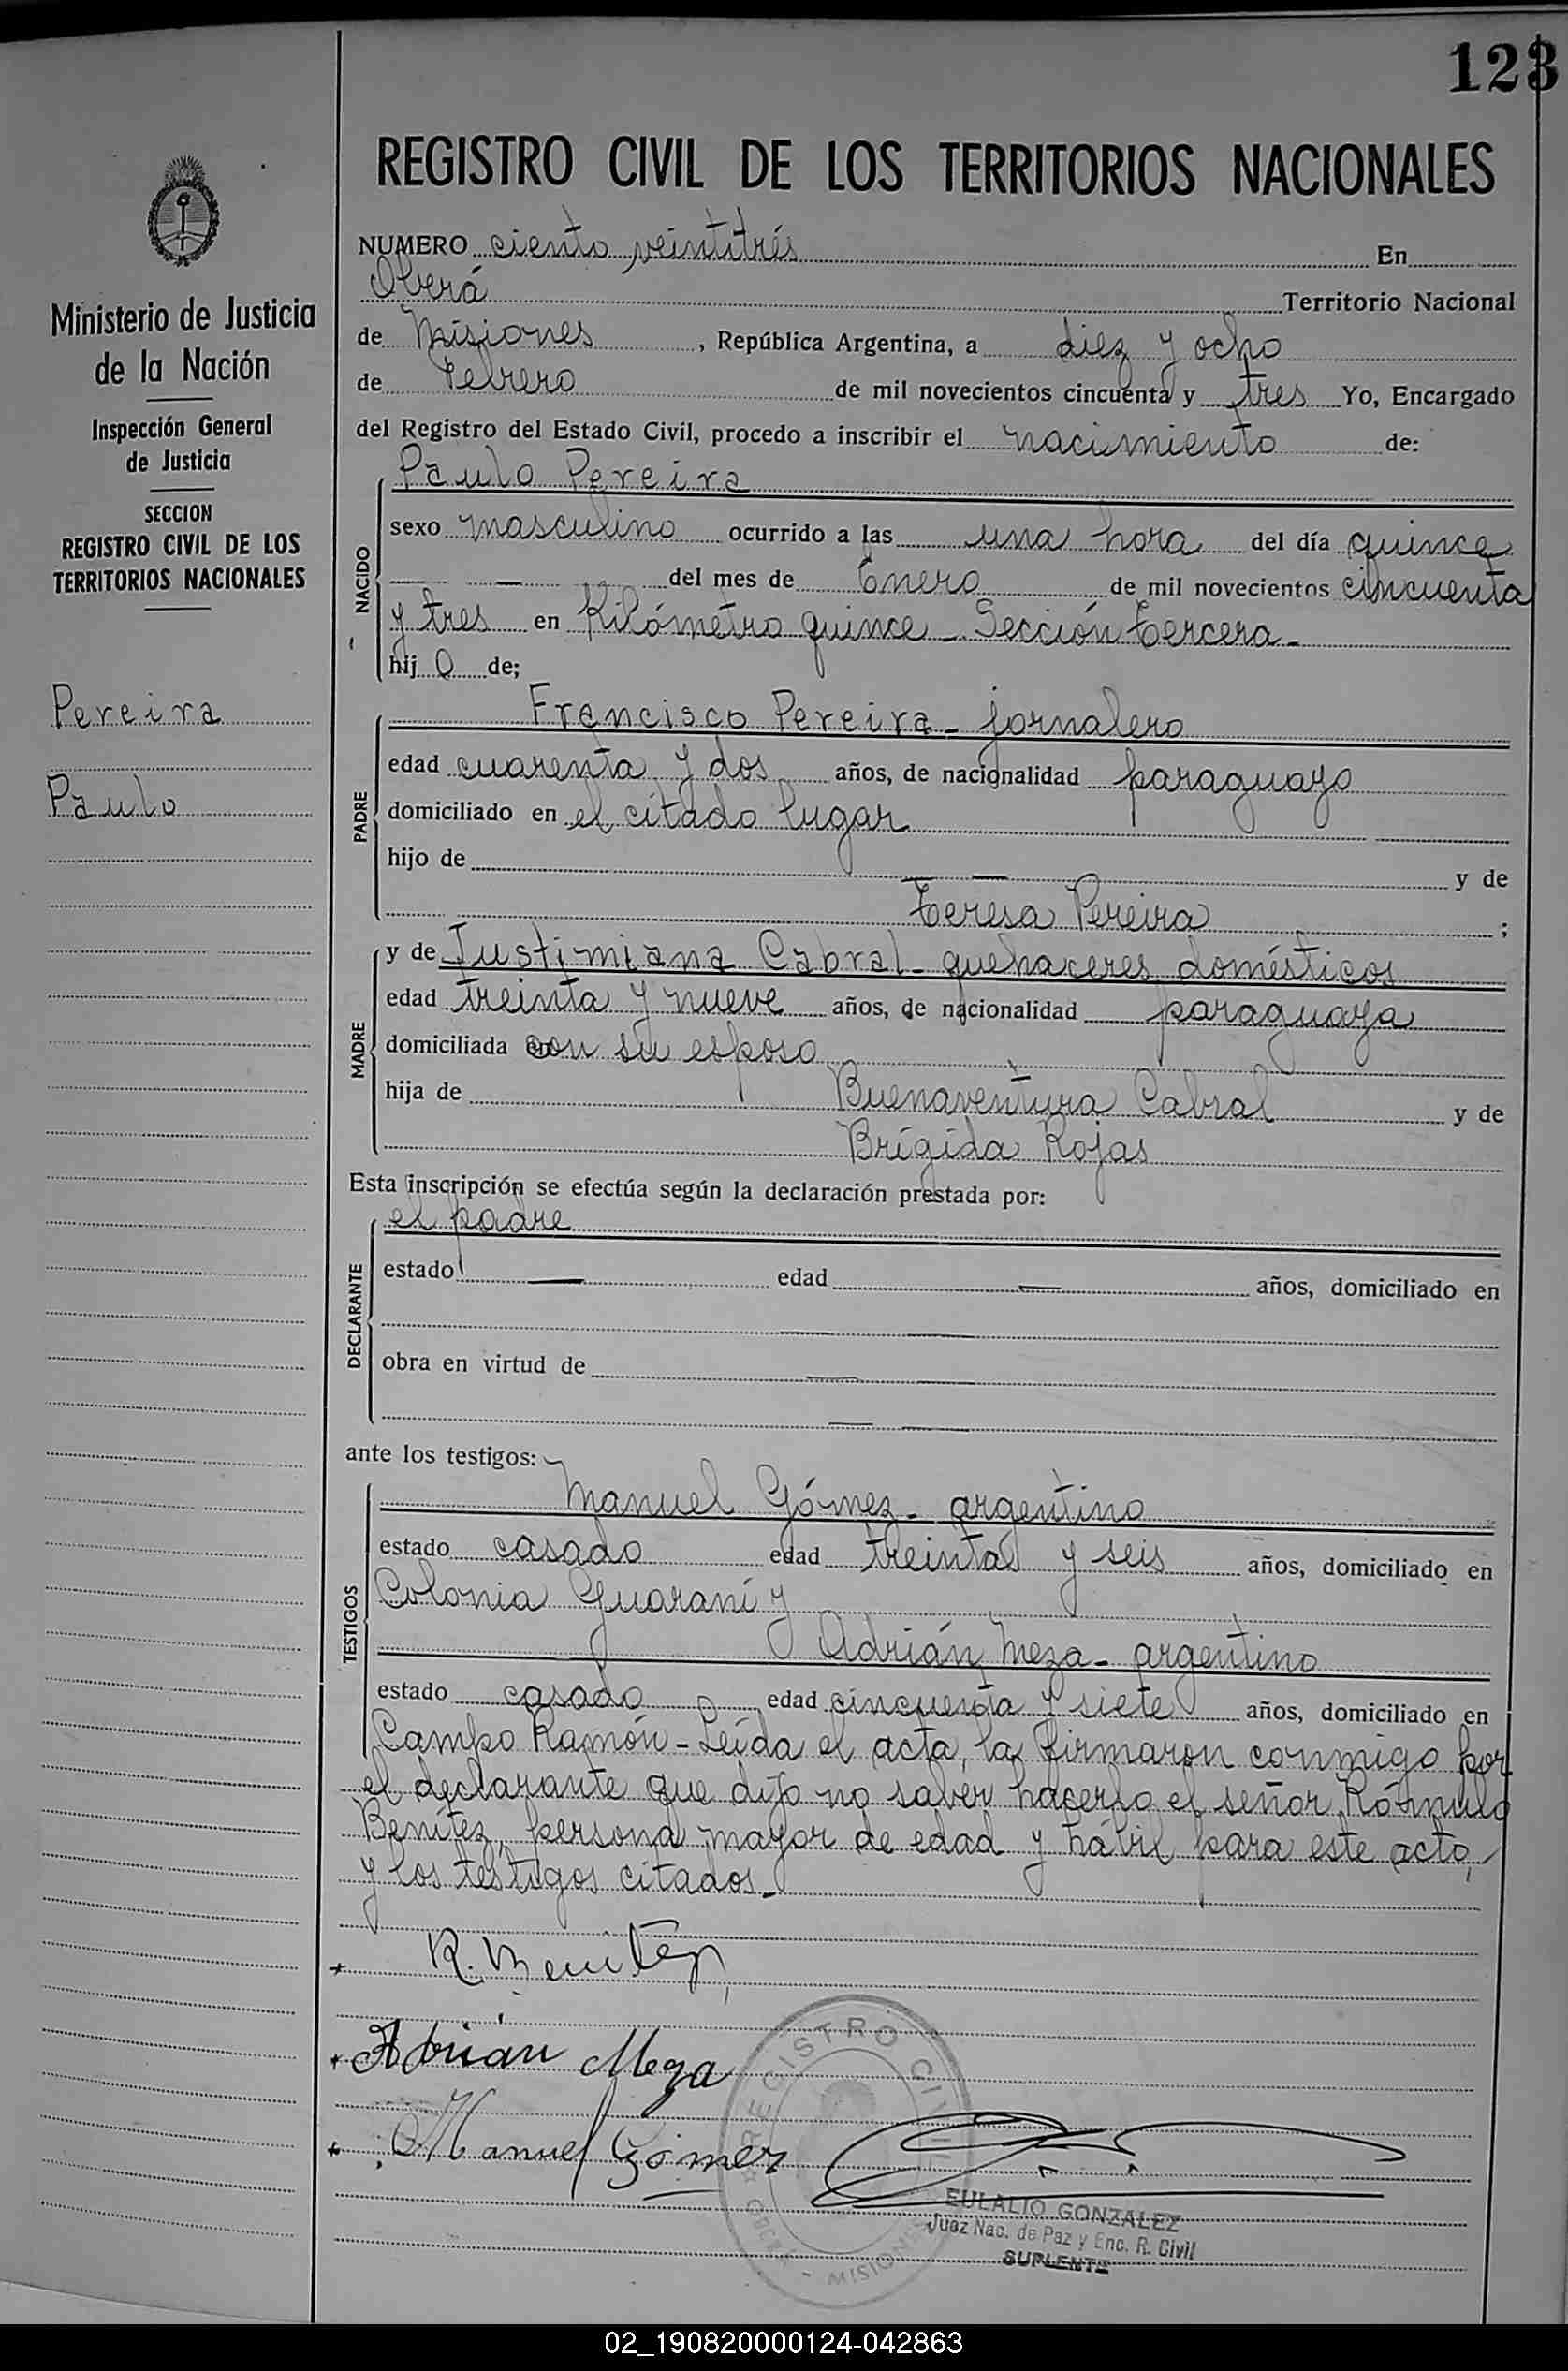 123
REGISTRO CIVIL DE LOS TERRITORIOS NACIONALES
Ministerio de Justicia
de la Nación
Inspección General
de Justicia
SECCION
REGISTRO CIVIL DE LOS
TERRITORIOS NACIONALES
Pereira
Paulo
NUMERO ciento veintitrés En
Oberá Territorio Nacional
de Misiones, República Argentina, a diez y ocho
de Febrero de mil novecientos cincuenta y tres Yo, Encargado
del Registro del Estado Civil, procedo a inscribir el nacimiento de:
NACIDO
Paulo Pereira
sexo masculino ocurrido a las una hora del día quince
del mes de Enero de mil novecientos cincuenta
y tres en Kilómetro quince - Sección tercera -
hijo de;
PADRE
Francisco Pereira - jornalero
edad cuarenta y dos años, de nacionalidad paraguayo
domiciliado en el citado lugar
hijo de — y de
Teresa Pereira ;
MADRE
y de Justimiana Cabral - quehaceres domésticos
edad treinta y nueve años, de nacionalidad paraguaya
domiciliada con su esposo
hija de Buenaventura Cabral y de
Brígida Rojas
Esta inscripción se efectúa según la declaración prestada por:
DECLARANTE
el padre
estado — edad — años, domiciliado en
obra en virtud de —
ante los testigos:
TESTIGOS
Manuel Gómez - argentino
estado casado edad treinta y seis años, domiciliado en
Colonia Guaraní y
Adrián Meza - argentino
estado casado edad cincuenta y siete años, domiciliado en
Campo Ramón - Leída el acta, la firmaron conmigo por
el declarante que dijo no saber hacerlo el señor Rómulo
Benítez, persona mayor de edad y hábil para este acto,
y los testigos citados.-
R. Benítez
Adrián Meza
Manuel Gómez
REGISTRO CIVIL
OBERA - MISIONES
EULALIO GONZALEZ
Juez Nac. de Paz y Enc. R. Civil
SUPLENTE
02_190820000124-042863